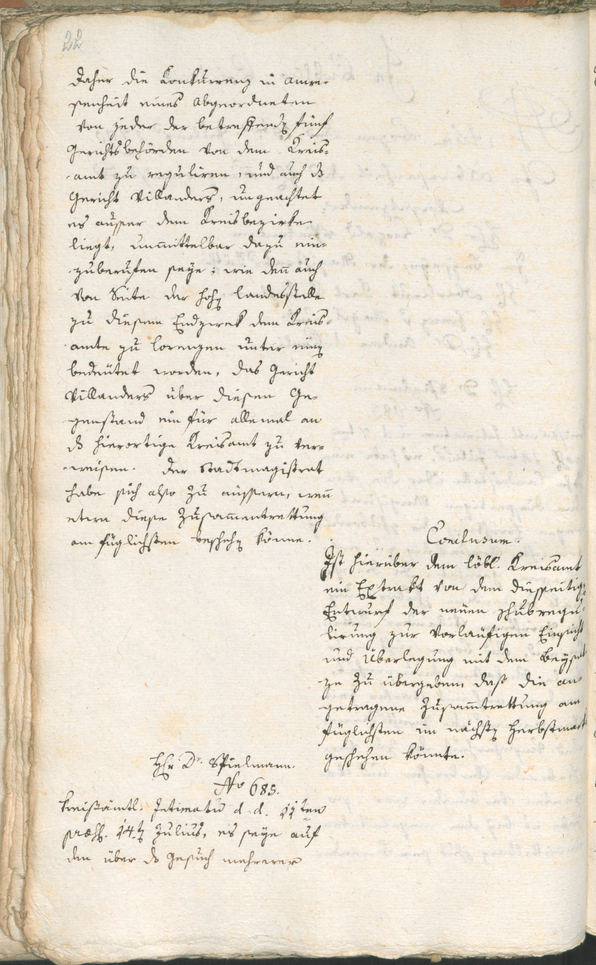 22
daher die Konkurrenz in Anwe-
senheit eines Abgeordneten
von jeder der betreffend fünf
Gerichtsbehörden von dem Kreis-
amt zu reguliren, und auch ds
Gericht Villanders, ungeachtet
es ausser dem Kreisbezirke
liegt, unmittelbar dazu ein-
zuberufen seye; wie den auch
von Seite der hohen Landesstelle
zu diesem Endzweck dem Kreis-
amte zu Lorenzen unter einz
bedeutet worden, das Gericht
Villanders über diesen Ge-
genstand ein für allemal an
ds hierortige Kreisamt zu ver-
weisen. Der Stadtmagistrat
habe sich also zu äussern, wenn
etwa diese Zusammentrettung
am füglichsten beschehen könne.
Conclusum.
Ist hierüber dem löbl. Kreisamt
ein Extrakt von dem diesseitigen
Entwurf der neuen Schubregu-
lirung zur vorläufigen Einsicht
und Überlegung mit dem Beysa-
ze zu übergeben, dass die an-
getragene Zusammtrettung am
füglichsten im nächsten Herbstmonat
geschehen könnte.
Hr Dr. Spielmann
No 685.
Kreisämtl. Intimatum d. d. 11ten
praes. 14ten Julius, es seye auf
den über ds Gesuch mehrerer